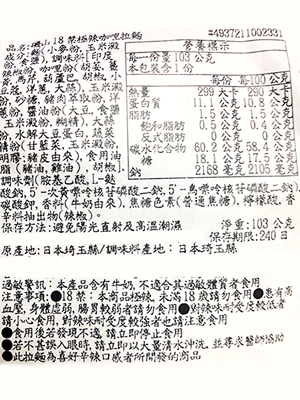 #4937211002331
品名:磯山18禁極辣咖哩拉麵
成分:麵(小麥粉、玉米澱
粉、食鹽)、調味料[印度
辣椒粉、咖哩粉(胡荽、薑
黃、馬芹、葫蘆巴、胡椒、小
豆蔻、洋蔥、大蒜)、玉米澱
粉、砂糖、豬肉萃取粉、洋
蔥、醬油粉(大豆、食鹽、
玉米澱粉)、玉米糖漿、食
鹽、大蒜、番茄粉、胡椒
粉、水解大豆蛋白、蔬菜
精粉(甘藍菜、玉米澱粉、
明膠:豬皮由來)、食用油
脂(豬油、雞油、胡椒)、
調味劑(胺基乙酸、L-麩
酸鈉、5'-次黃嘌呤核苷磷酸二鈉、5'-鳥嘌呤核苷磷酸二鈉、
碳酸鈣、香料(牛奶由來)、焦糖色素(普通焦糖)、檸檬酸、香
辛料抽出物)、辣椒。
營養標示
每一份量103公克
本包裝含1份
每份 每100公克
熱量 299大卡 290大卡
蛋白質 11.1公克 10.8公克
脂肪 1.5公克 1.5公克
飽和脂肪 0.5公克 0.4公克
反式脂肪 0公克 0公克
碳水化合物 60.2公克 58.4公克
糖 18.1公克 17.5公克
鈉 2168毫克 2105毫克
保存方法:避免陽光直射及高溫潮濕 淨重:103公克
保存期限:240日
原產地:日本埼玉縣/調味料產地:日本埼玉縣
過敏警訊:本產品含有牛奶,不適合其過敏體質者食用
注意事項:●18禁:本商品極辣,未滿18歲請勿食用●患有高
血壓,身體虛弱,腸胃較弱者請勿食用●對辣味耐受度較低者
請小心食用,對辣味耐受度較強者也請注意食用
●食用後若發現不適,請立即停止食用
●若不甚誤入眼時,請立即以大量清水沖洗,並尋求醫師協助
●此拉麵為喜好辛辣口感者所開發的商品